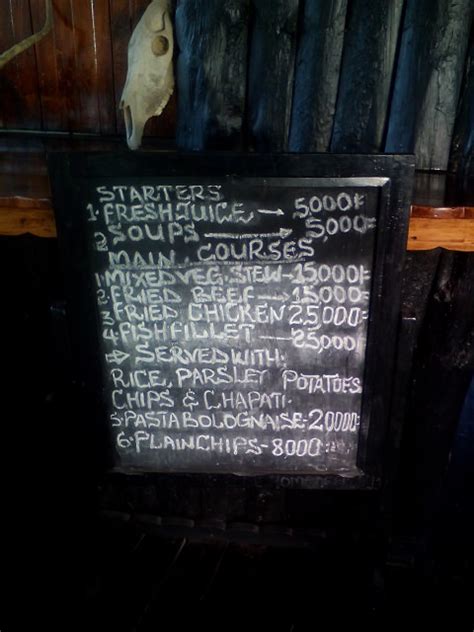 STARTERS
1. FRESH JUICE → 5,000/=
2 SOUPS → 5,000/=
MAIN COURSES
1 MIXED VEG. STEW - 15,000/=
2 FRIED BEEF → 15,000/=
3 FRIED CHICKEN 25,000/=
4 FISH FILLET - 25,000/=
⇒ SERVED WITH.
RICE, PARSLEY POTATOES
CHIPS & CHAPATI.
5. PASTA BOLOGNAISE - 20000/=
6. PLAIN CHIPS - 8000/=